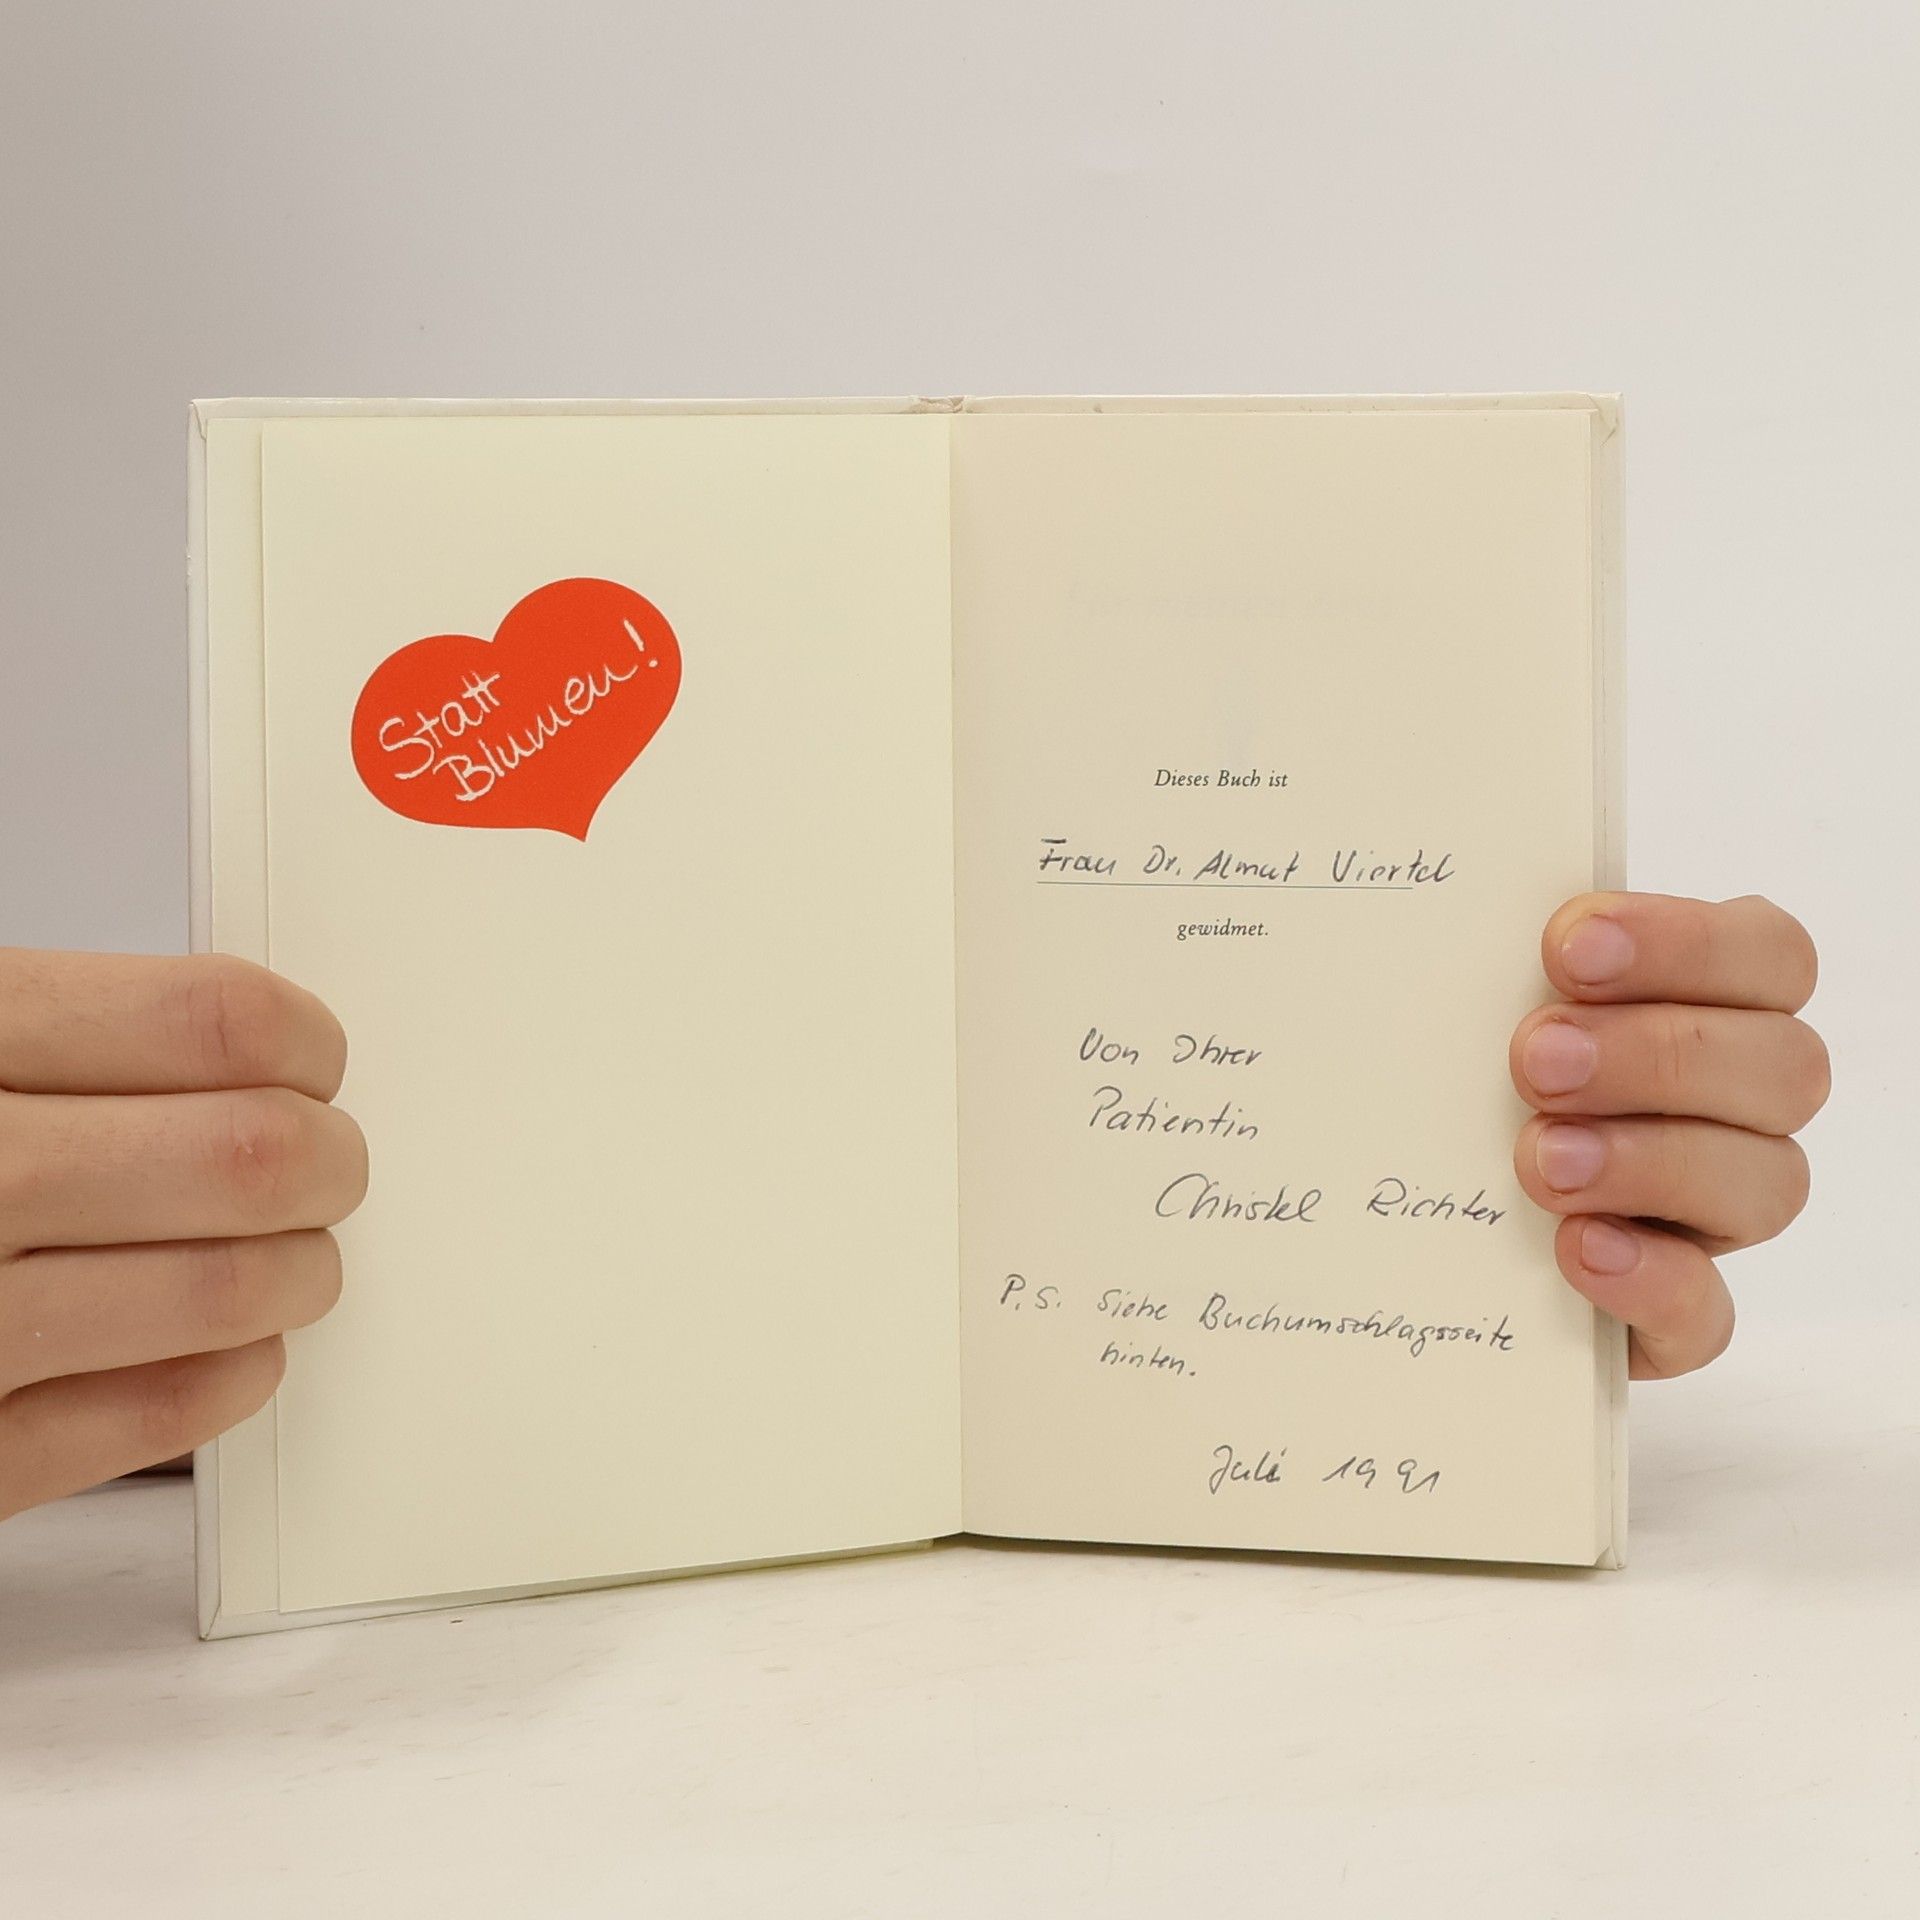 Statt
Blumen!
Dieses Buch ist
Frau Dr. Almut Viertel
gewidmet.
Von Ihrer
Patientin
Christel Richter
P.S. Siehe Buchumschlagsseite
hinten.
Juli 1991